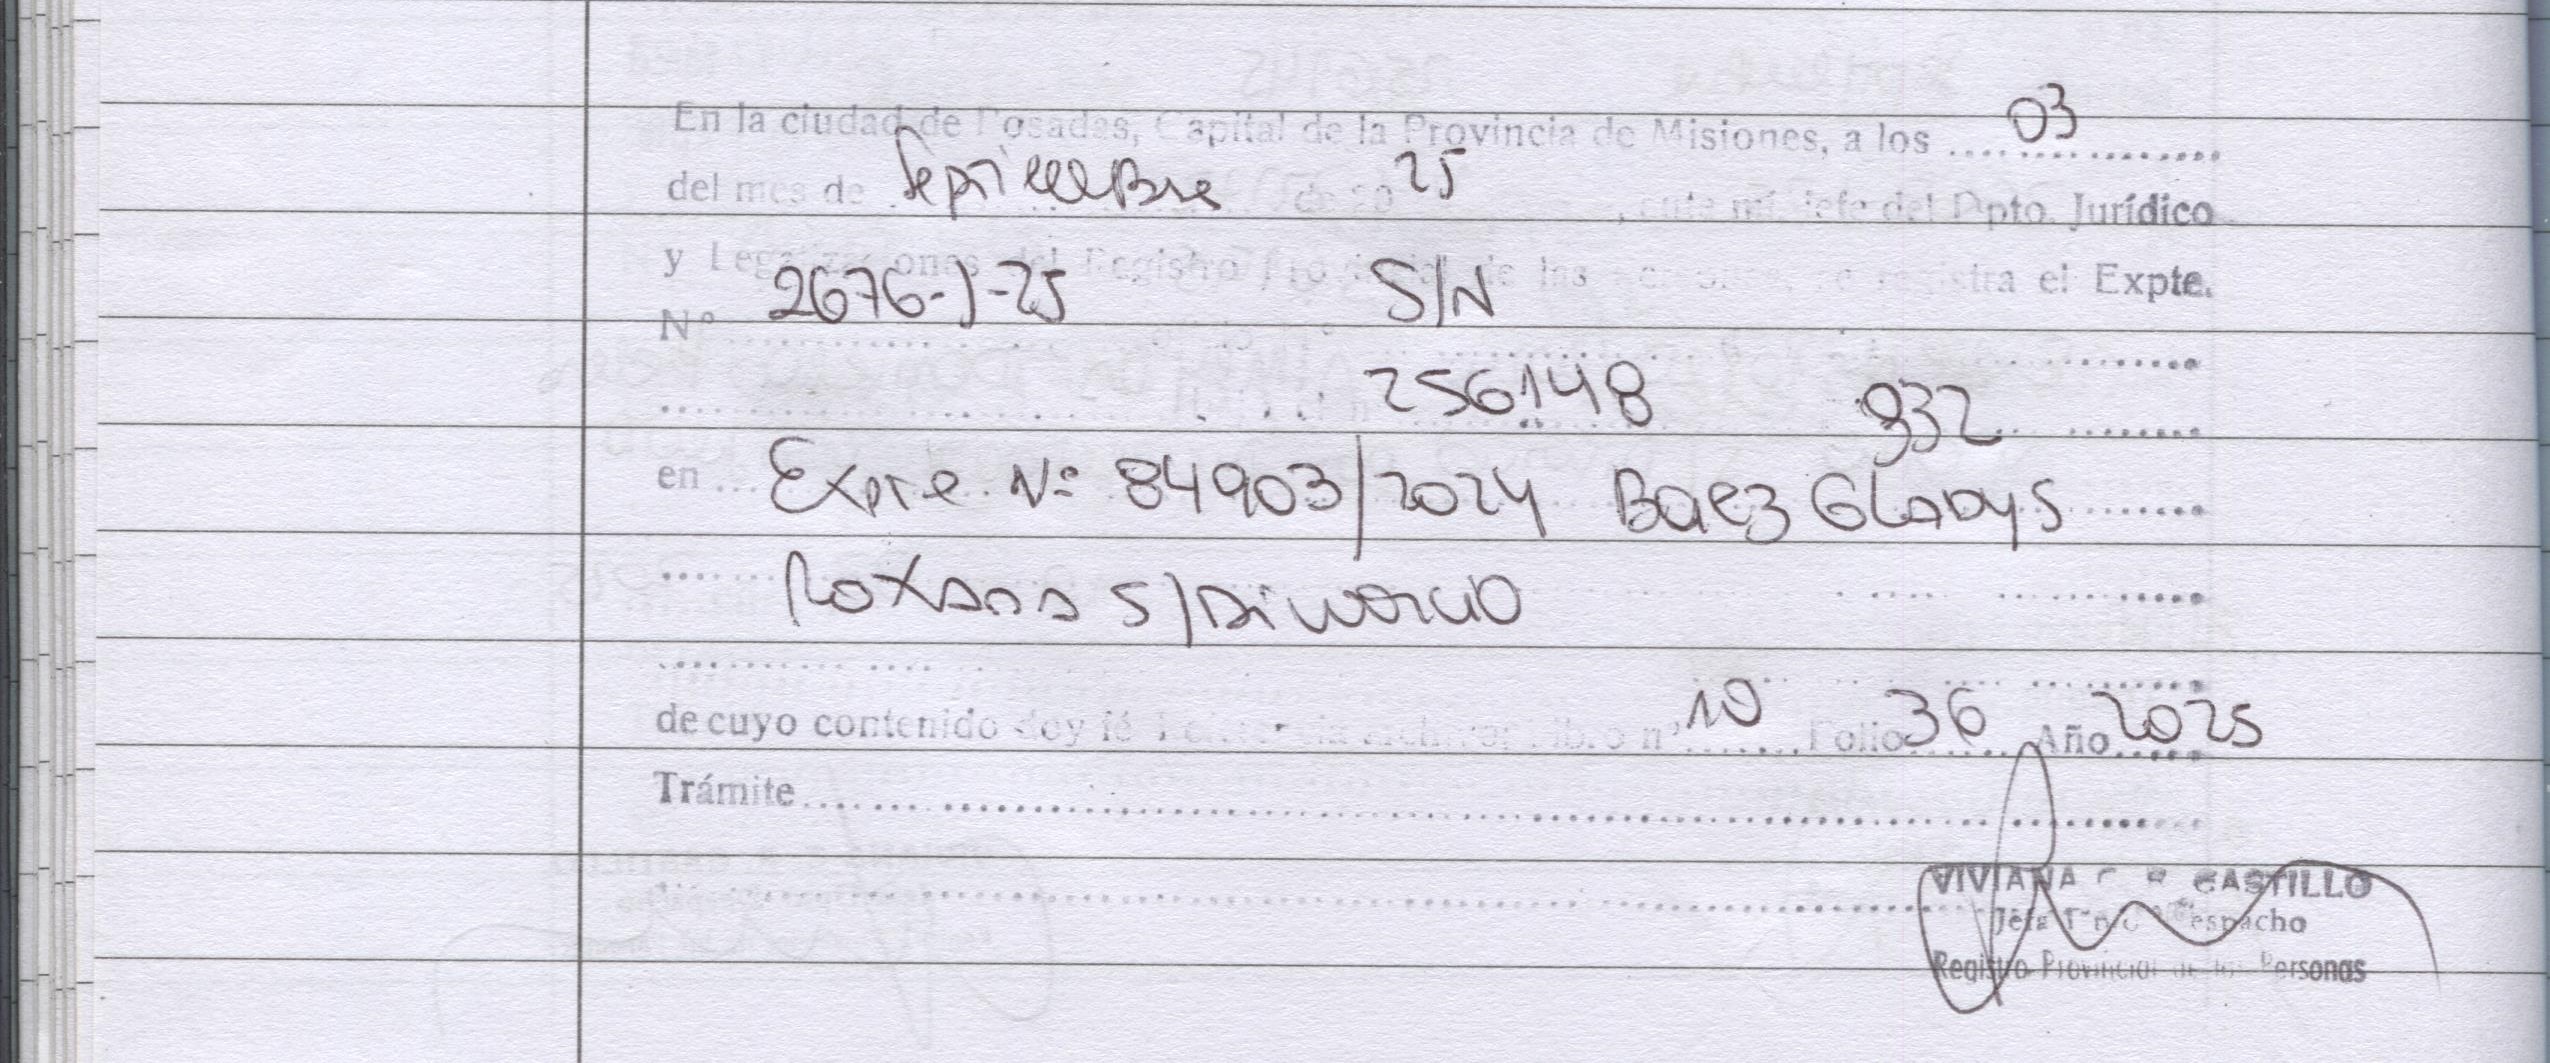 En la ciudad de Posadas, Capital de la Provincia de Misiones, a los .... 03
del mes de Septiembre de 20 25, ante mi Jefe del Dpto. Jurídico
y Legalizaciones del Registro Provincial de las Personas, se registra el Expte.
Nº 2676-J-25 S/N
256148 932
en Expte Nº 84903/2024 Baez Gladys
Roxana S/Divorcio
de cuyo contenido doy fé Libro nº 10 Folio 36 Año 2025
Trámite
VIVIANA CASTILLO
Jefa Despacho
Registro Provincial de las Personas